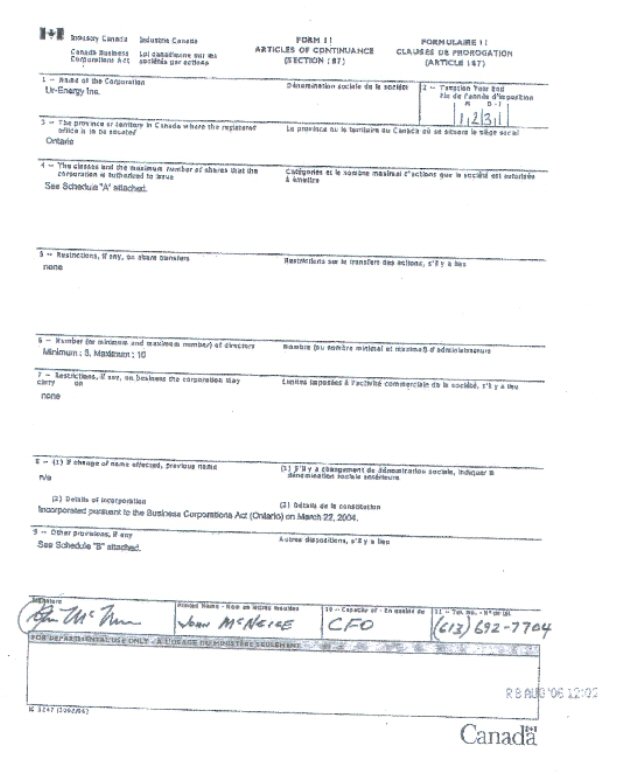 Industry Canada Industrie Canada
Canada Business Loi canadienne sur les
Corporations Act sociétés par actions
FORM 11
ARTICLES OF CONTINUANCE
(SECTION 187)
FORMULAIRE 11
CLAUSES DE PROROGATION
(ARTICLE 187)
1 -- Name of the Corporation Dénomination sociale de la société
Ur-Energy Inc.
2 -- Taxation Year End
Fin de l'année d'imposition
M D-J
1 2 3 1
3 -- The province or territory in Canada where the registered La province ou le territoire au Canada où se situera le siège social
office is to be situated
Ontario
4 -- The classes and the maximum number of shares that the Catégories et le nombre maximal d'actions que la société est autorisée
corporation is authorized to issue à émettre
See Schedule "A" attached.
5 -- Restrictions, if any, on share transfers Restrictions sur le transfert des actions, s'il y a lieu
none
6 -- Number (or minimum and maximum number) of directors Nombre (ou nombre minimal et maximal) d'administrateurs
Minimum : 3, Maximum : 10
7 -- Restrictions, if any, on business the corporation may Limites imposées à l'activité commerciale de la société, s'il y a lieu
carry on
none
8 -- (1) If change of name effected, previous name (1) S'il y a changement de dénomination sociale, indiquer la
dénomination sociale antérieure
n/a
(2) Details of incorporation (2) Détails de la constitution
Incorporated pursuant to the Business Corporations Act (Ontario) on March 22, 2004.
9 -- Other provisions, if any Autres dispositions, s'il y a lieu
See Schedule "B" attached.
Signature Printed Name - Nom en lettres moulées 10 -- Capacity of - En qualité de 11 -- Tel. No. - N° de tél.
JOHN McNEICE CFO (613) 692-7704
FOR DEPARTMENTAL USE ONLY - À L'USAGE DU MINISTÈRE SEULEMENT
AUG '06 12:02
IC 3247 (2002/06)
Canada